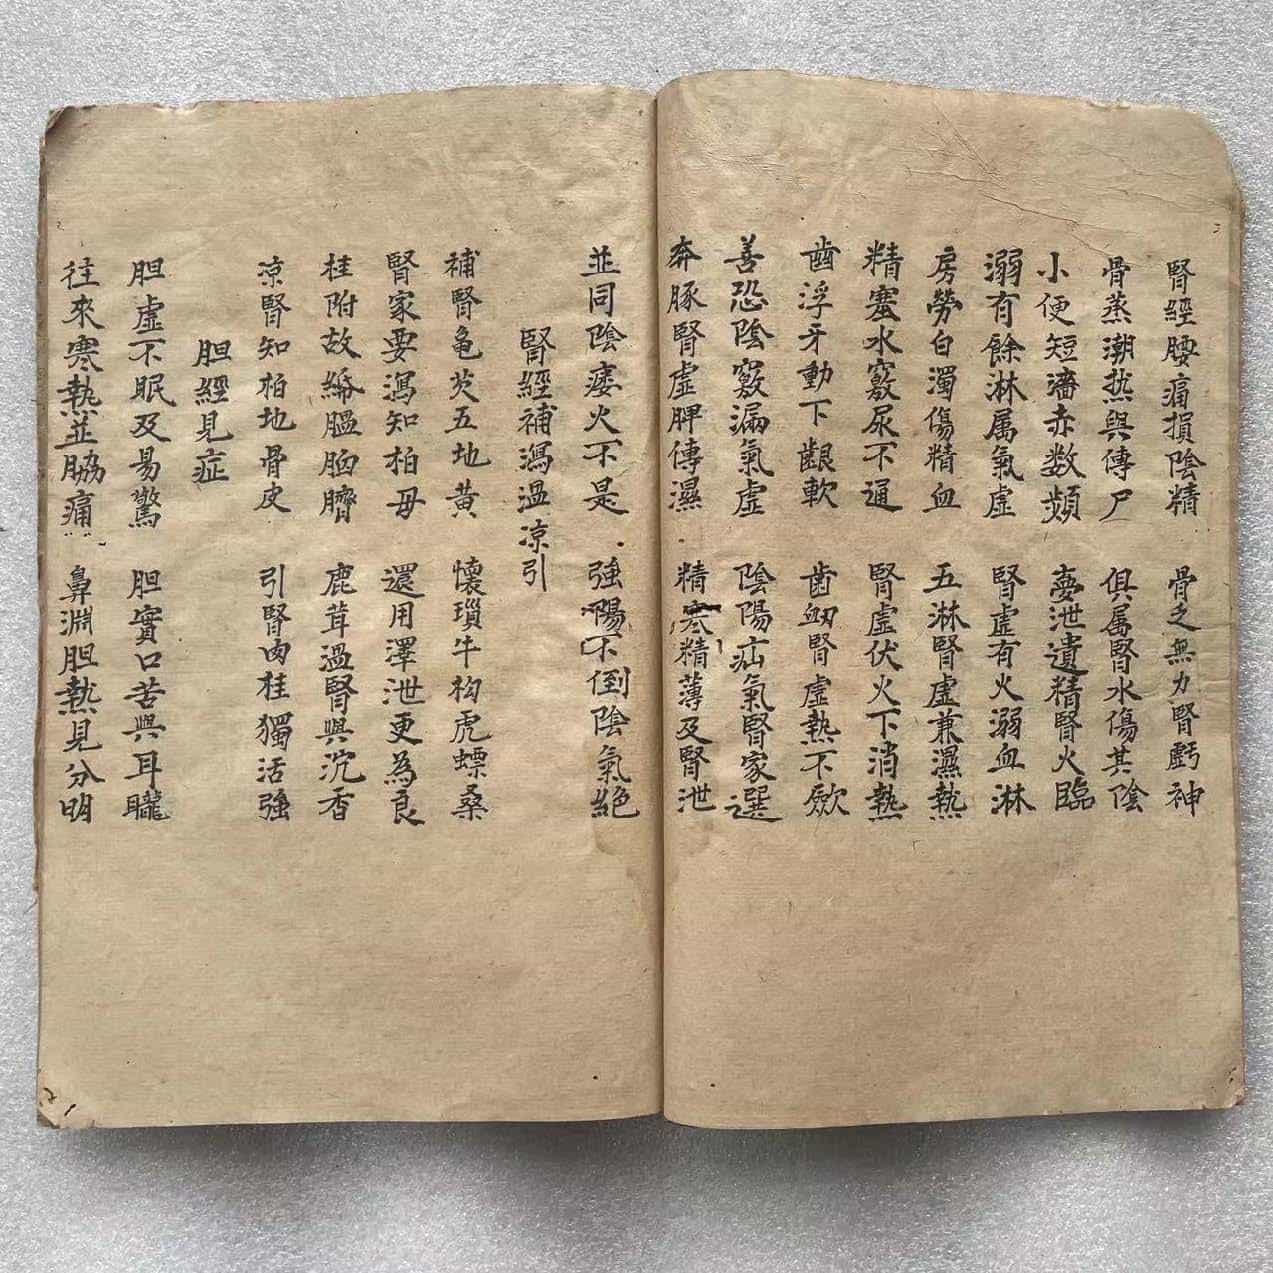 腎經腰痛損陰精 骨乏無力腎虧神
骨蒸潮热與傳尸 俱属腎水傷其陰
小便短濇赤数頻 夢泄遺精腎火臨
溺有餘淋属氣虛 腎虛有火溺血淋
房勞白濁傷精血 五淋腎虛兼濕熱
精塞水竅尿不通 腎虛伏火下消熱
齒浮牙動下齦軟 齒衂腎虛熱不歛
善恐陰竅漏氣虛 陰陽疝氣腎家選
奔豚腎虛脾傳濕 精寒精薄及腎泄
並同陰痿火不是 強陽不倒陰氣絕
腎經補瀉溫凉引
補腎龜芡五地黃 懷瑣牛枸虎螵桑
腎家要瀉知柏毋 還用澤泄更為良
桂附故 腽肭臍 鹿茸溫腎與沉香
凉腎知柏地骨皮 引腎肉桂獨活強
胆經見症
胆虛不眠及易驚 胆實口苦與耳聾
往來寒熱並脇痛 鼻淵胆熱見分明